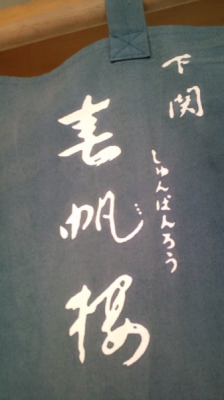 下関
しゅんぱんろう
春帆楼